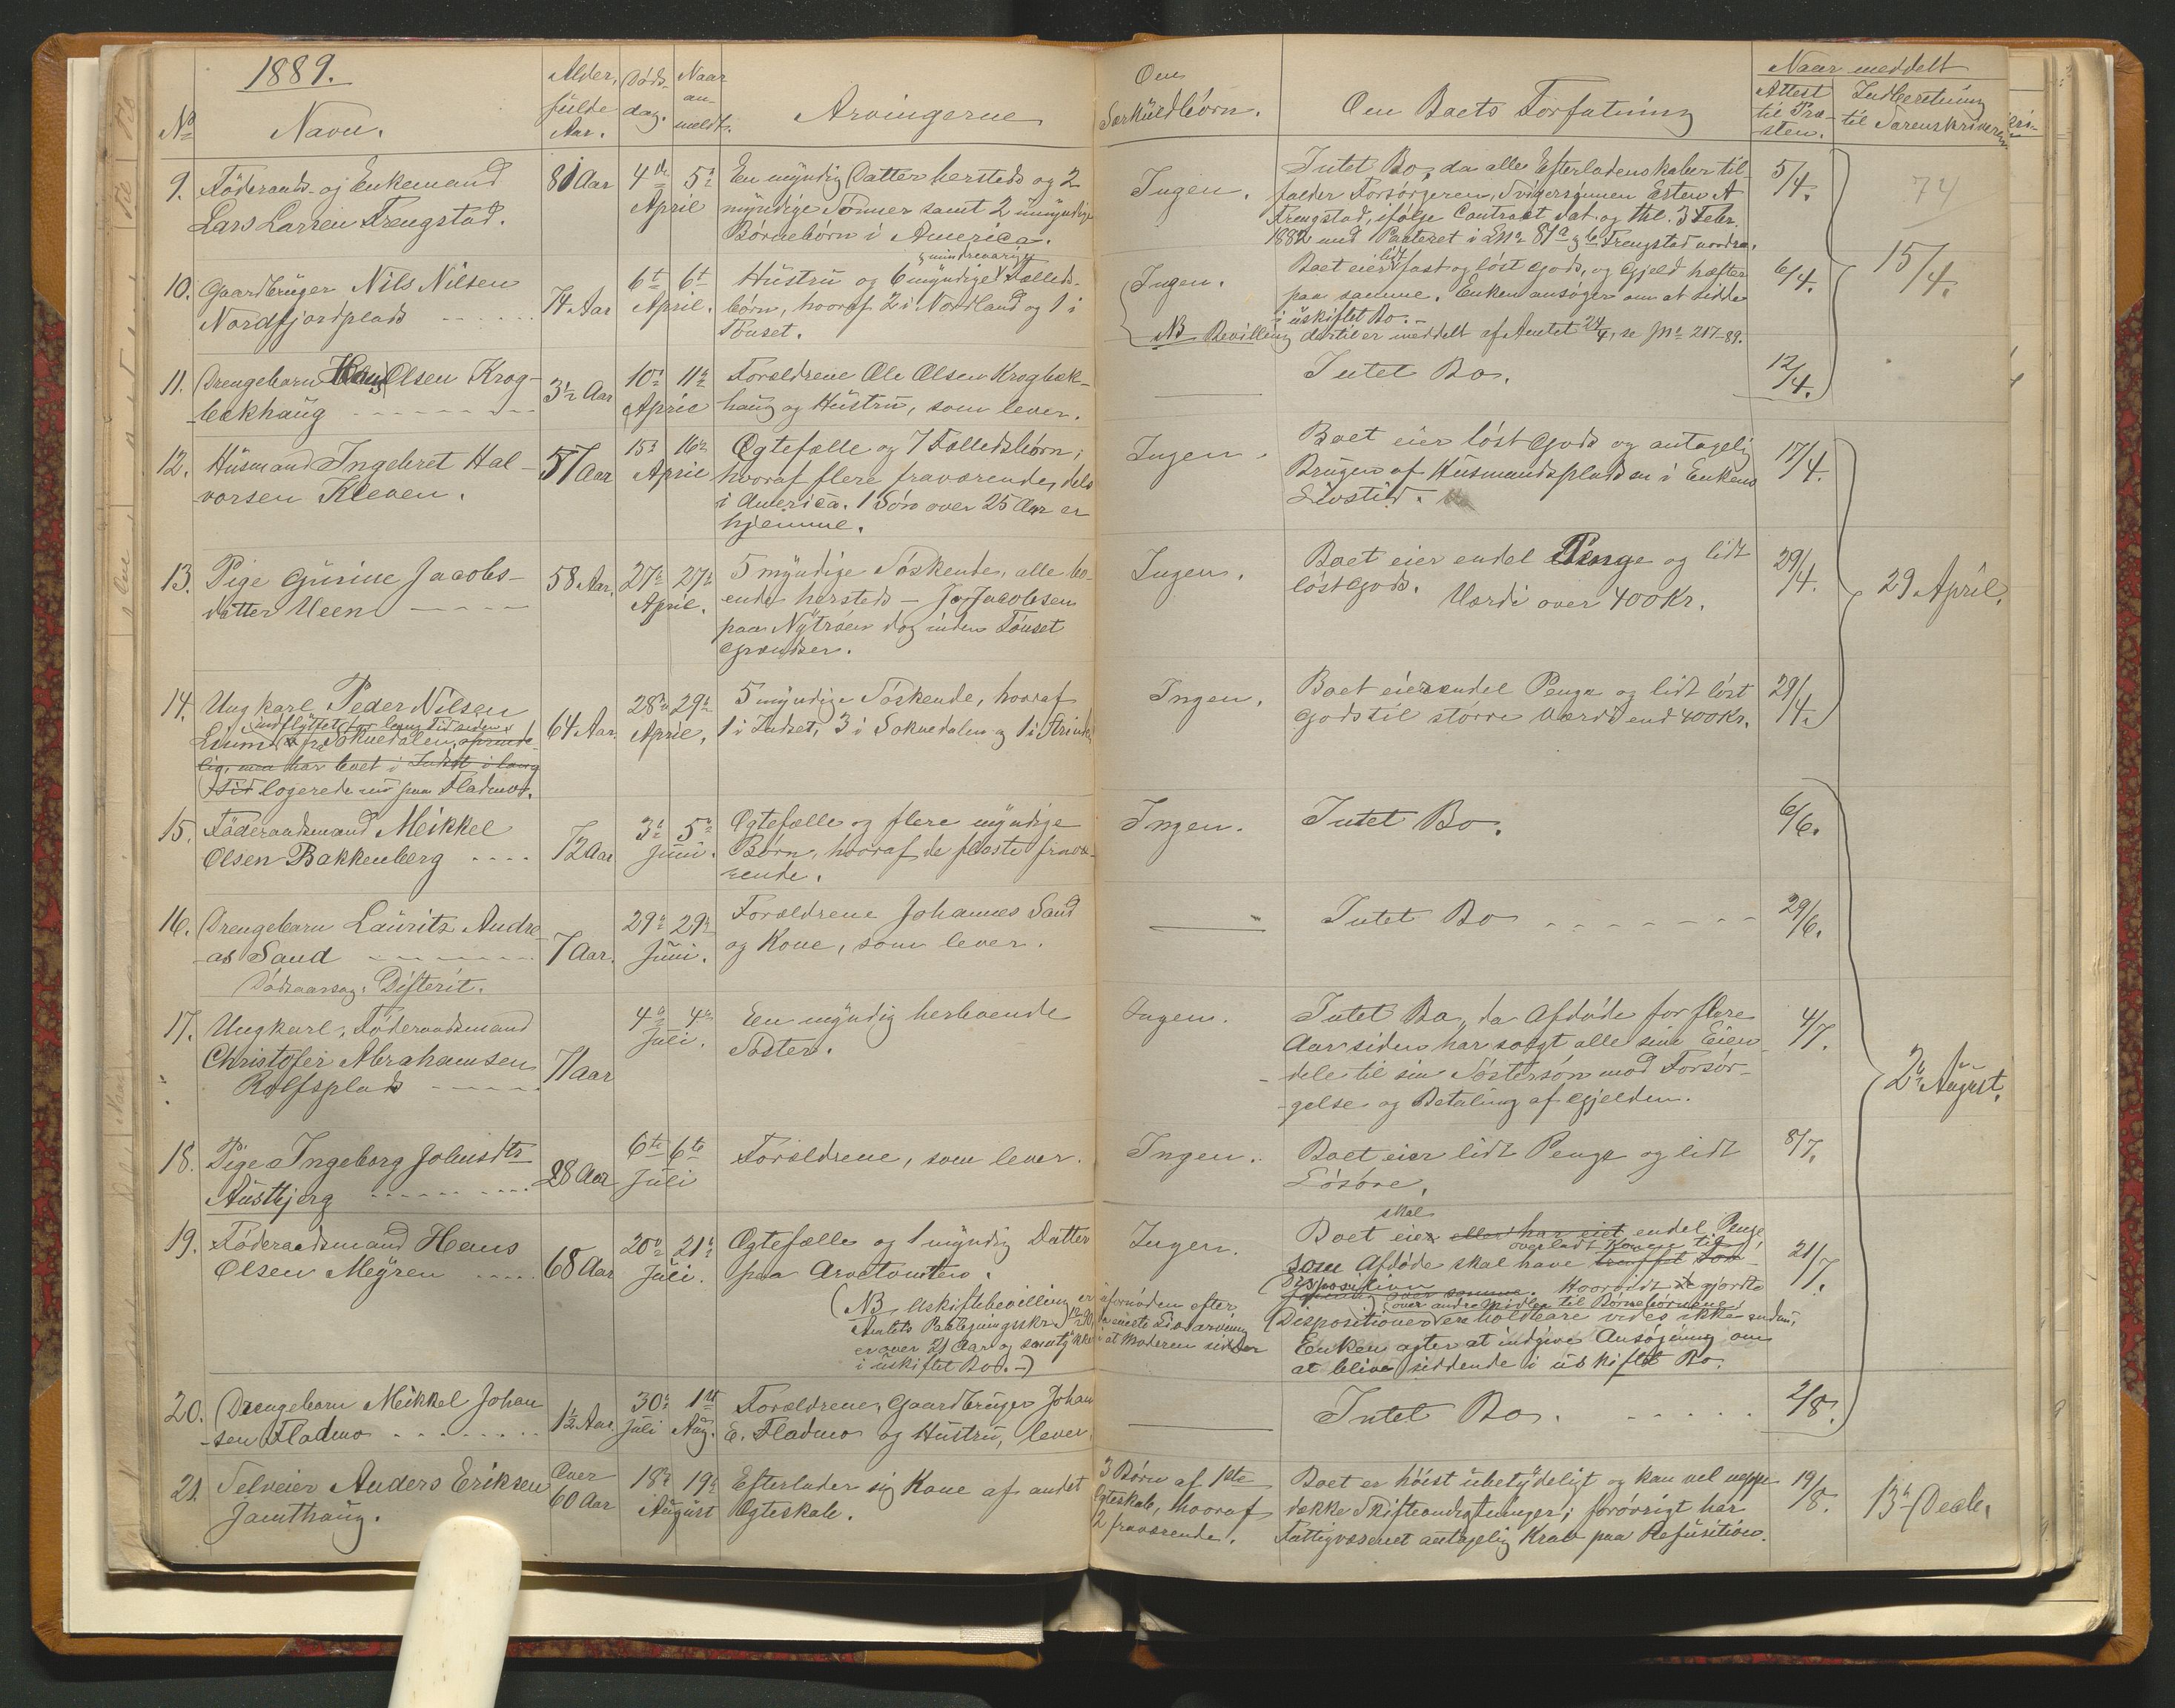 1889.
No
Navn.
Alder,
fulde
Aar.
Døds-
dag.
Naar
an-
meldt.
Arvingerne
Om
Særkuldbørn.
Om Boets Forfatning
Naar meddelt
Attest
til Pro-
sten.
Indberetning
til Sorenskriveren
9. Föderaads- og Enkemand
Lars Larsen Trengstad.
81 Aar
4de 5te
April
En myndig Datter hersteds og 2
myndige Sønner samt 2 umyndige
Børnebørn i America.
Ingen.
Intet Bo, da alle Efterladenskaber til-
falder Forsørgeren, Svigersønnen Esten A
Trengstad, ifølge Contract dat. og thl. 3 Febr.
1882 med Panteret i L.No 87a & b Trengstad nordre.
5/4.
74
10. Gaardbruger Nils Nilsen
Nordfjordplads
74 Aar
6te 6te
April.
& mindreaarige
Hustru og 6 myndige Fælleds-
børn, hvoraf 2 i Nordland og 1 i
Tønset.
Ingen.
Boet eier lidt fast og løst Gods, og Gjeld hæfter
paa samme. Enken ansøger om at sidde
i uskiftet Bo.
NB Bevilling dertil er meddelt af Amtet 24/4, se JNo 217-89.
6/4.
15/4.
11. Drengebarn Hans Olsen Krog-
bækhaug
3½ Aar
10de 11te
April
Forældrene Ole Olsen Krogbæk-
haug og Hustru, som lever.
Intet Bo.
12/4.
12. Husmand Ingebret Hal-
vorsen Kleven.
57 Aar
15de 16de
April
Ægtefælle og 7 Fælledsbørn;
hvoraf flere fraværende, dels
i America. 1 Søn over 25 Aar er
hjemme.
Ingen.
Boet eier løst Gods og antagelig
Brugen af Husmandspladsen i Enkens
Livstid.
17/4.
13. Pige Gurine Jacobs-
datter Ween
58 Aar.
27de 27de
April.
5 myndige Søskende, alle bo-
ende hersteds - Jo Jacobsen
paa Nytrøen dog inden Tønset
Grændser.
Ingen.
Boet eier endel Penge og lidt
løst Gods. Værdi over 400 Kr.
29/4.
29 April.
14. Ungkarl Peder Nilsen
indflyttet for lang Tid siden
fra Soknedalen, oprinde-
lig, men har levet i Indset i lang
Tid logerede nu paa Fladmo.
64 Aar.
28de 29de
April.
5 myndige Søskende, hvoraf
1 i Indset, 3 i Soknedalen og 1 i Strinden
Ingen.
Boet eier endel Penge og lidt løst
Gods til større Værdi end 400 Kr.
29/4.
15. Föderaadsmand Meikkel
Olsen Bakkenberg
72 Aar
3de 5te
Juni.
Ægtefælle og flere myndige
Børn, hvoraf de fleste fravæ-
rende.
Ingen.
Intet Bo.
6/6.
16. Drengebarn Lauritz Andre-
as Sand
Dødsaarsag: Difterit.
7 Aar.
29de 29de
Juni.
Forældrene Johannes Sand
og Kone, som lever.
Intet Bo
29/6.
17. Ungkarl, Föderaadsmand
Christofer Abrahamsen
Rolfsplads
71 Aar
4de 4de
Juli.
En myndig herboende
Søster.
Ingen.
Intet Bo, da Afdøde for flere
Aar siden har solgt alle sine Eien-
dele til sin Søstersøn mod Forsør-
gelse og Betaling af Gjelden.
4/7.
2de August.
18. Pige Ingeborg Johnsdtr
Austbjerg
28 Aar
6te 6te
Juli
Forældrene, som lever.
Ingen.
Boet eier lidt Penge og lidt
Løsøre.
8/7.
19. Föderaadsmand Hans
Olsen Mejren
68 Aar
20de 21de
Juli.
Ægtefælle og 1 myndig Datter
paa Arvetomten.
(NB Uskiftebevilling er ufornøden efter
Amtets Paategningsskr.
er over 21 Aar og samtykker i at Moderen sidder
i uskiftet Bo. -)
Ingen.
skal
Boet eier eller har eiet endel Penge,
overladt Konen til
som Afdøde skal have truffet
Disposition
over samme. Hvorvidt gjorte
over andre Midler til Børnebørnene
Dispositioner ere holdbare vides ikke endnu,
Enken agter at indgive Ansøgning om
at blive siddende i uskiftet Bo.
21/7.
20. Drengebarn Meikkel Johan-
sen Fladmo
1½ Aar.
30te 1ste
Juli Aug.
Forældrene, Gaardbruger Johan
E. Fladmo og Hustru, lever.
Intet Bo.
2/8.
21. Selveier Anders Eriksen
Jamthaug.
Over
60 Aar
18de 19de
August
Efterlader sig Kone af andet
Ægteskab.
3 Børn af 1ste
Ægteskab, hvoraf
2 fraværende.
Boet er höist ubetydeligt og kan vel neppe
dække Skifteomkostninger; forøvrigt har
Fattigvæsenet antagelig Krav paa Refusition.
19/8.
13de Decbr.